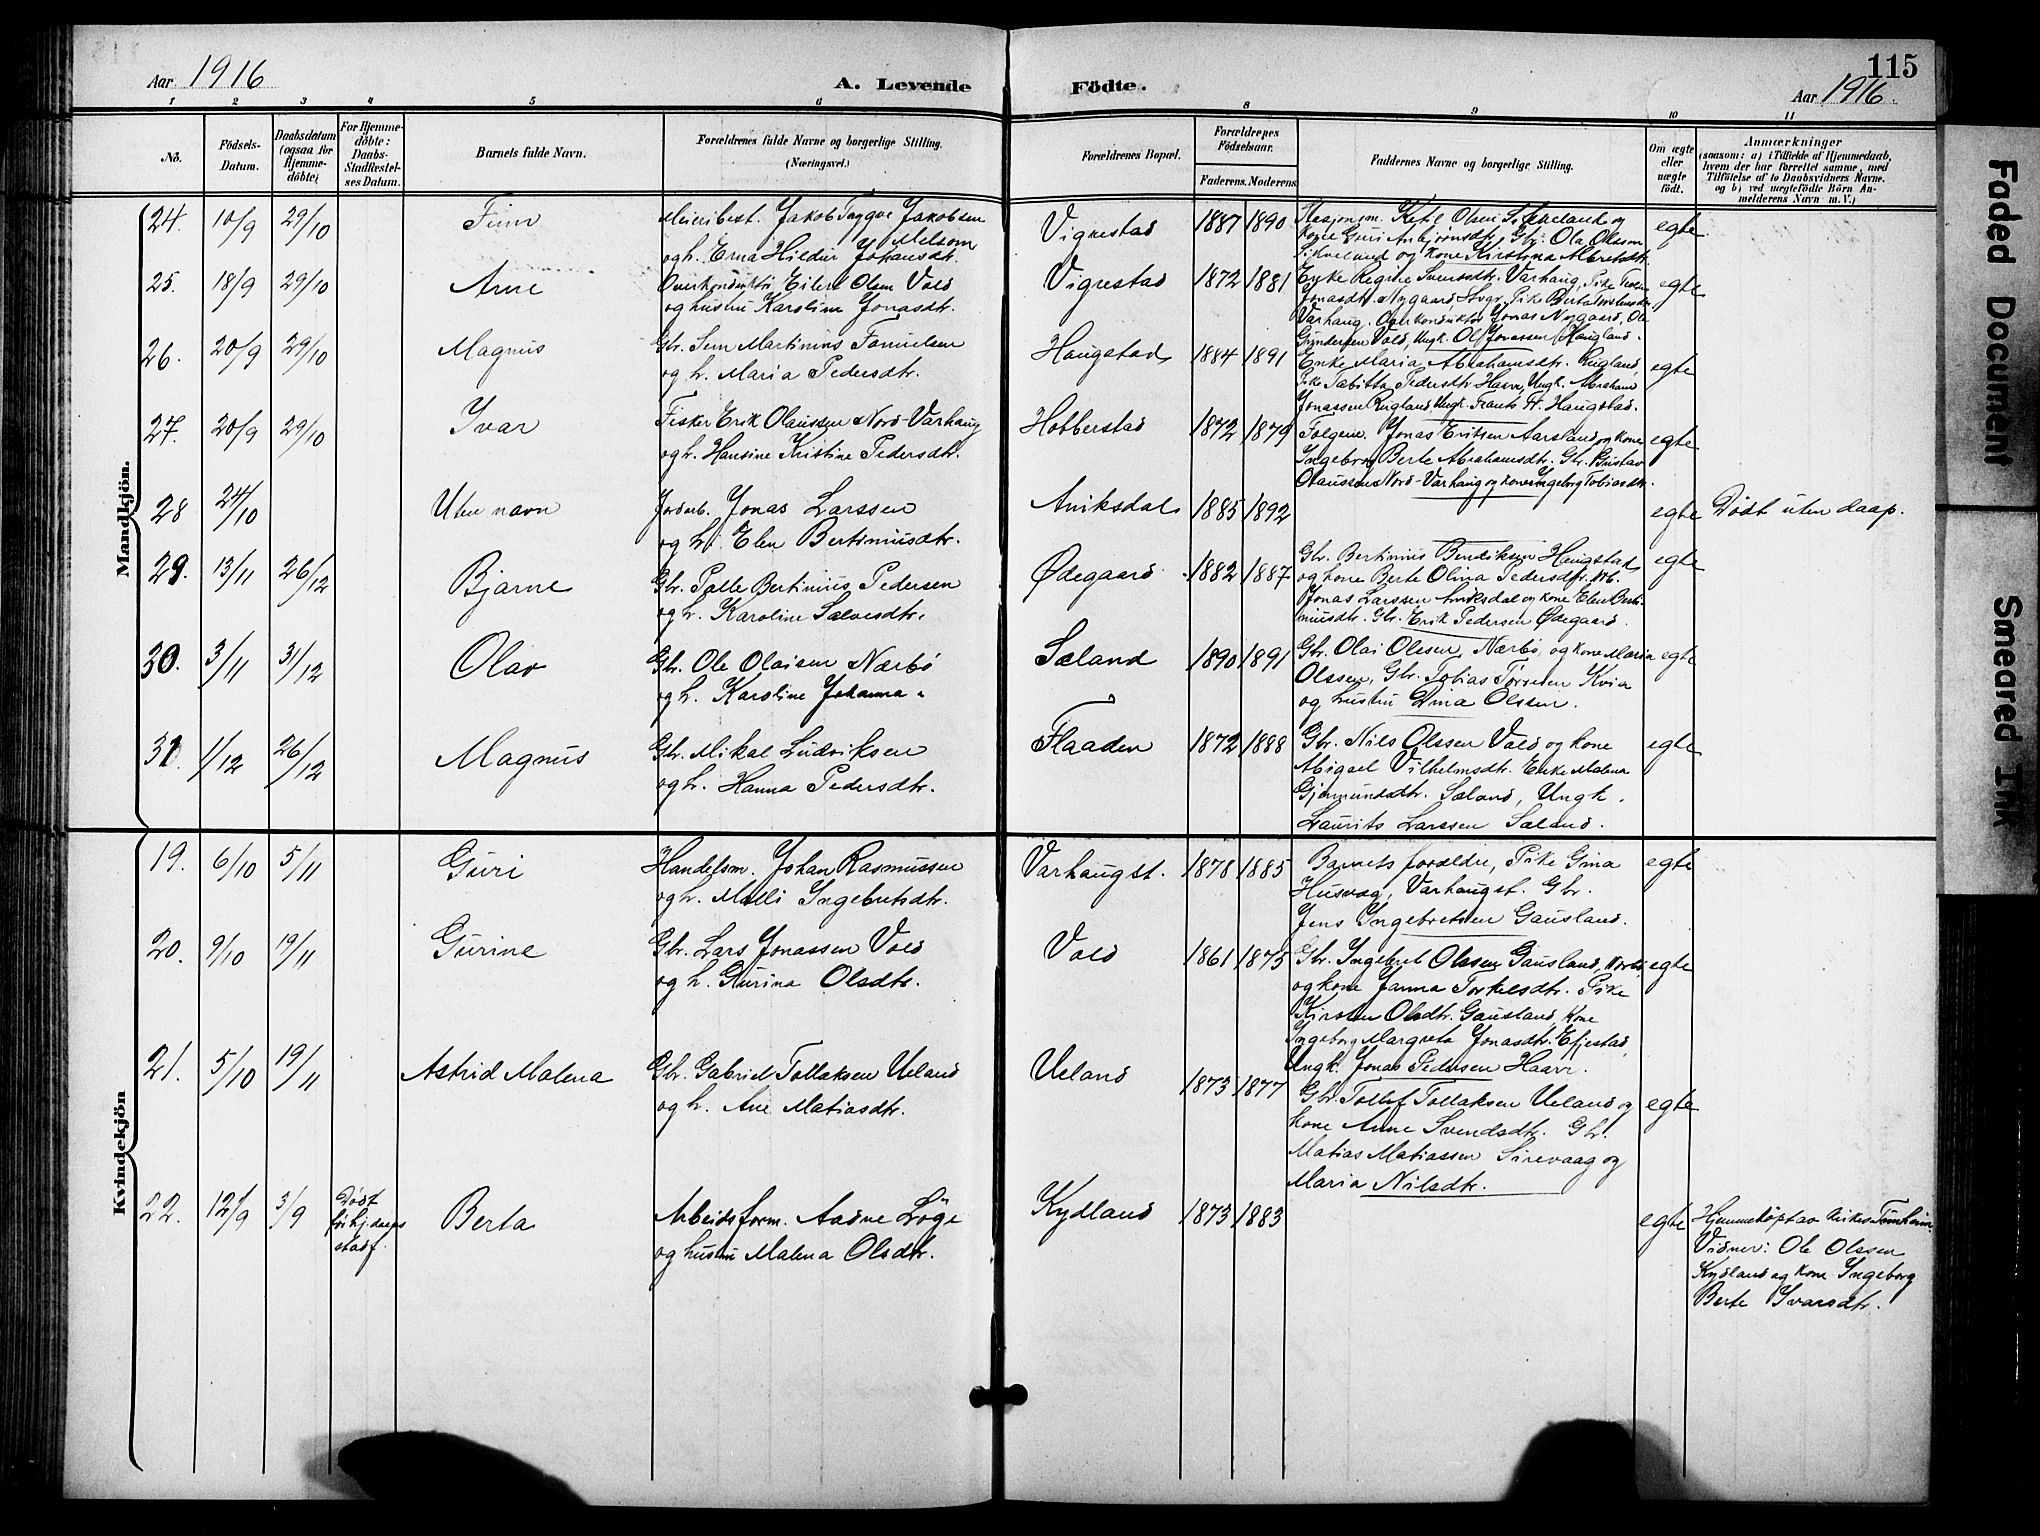 115
Aar 1916
A. Levende
Födte.
Aar 1916.
1 2 3 4 5 6 8 9 10 11
No.
Födsels-
Datum.
Daabsdatum
(ogsaa for
Hjemme-
döbte)
For Hjemme-
döbte:
Daabs-
Stadfæstel-
ses Datum.
Barnets fulde Navn.
Forældrenes fulde Navne og borgerlige Stilling.
(Næringsvei.)
Forældrenes Bopæl.
Forældrenes
Födselsaar.
Faderens. Moderens.
Faddernes Navne og borgerlige Stilling.
Om ægte
eller
uægte
födt.
Anmærkninger
(saasom: a) i Tilfælde af Hjemmedaab,
hvem der har forrettet samme, med
Tilföielse af to Daabsvidners Navne.
og b) ved uægtefödte Börn An-
melderens Navn m. V.)
Mandkjön.
24. 10/9 29/10 Finn
Meieribest. Jakob Tryggve Jakobsen
Melsom
og h. Erna Hildur Johansdtr.
Vigrestad 1887 1890
Stasjonsm. Ketil Olsen Sikveland og
kone Guri Asbjørnsdtr. Gbr. Ola Olssen
Sikveland og kone Kirstina
egte
25. 18/9 29/10 Arne
Overkonduktør Eilert Olsen Vold
og hustru Karoline Jonasdtr.
Vigrestad 1872 1881
Enke Regine Svensdtr. Varhaug, Pike
Jonasdtr. Nygaard, Stvgr. Pike Berta
Varhaug. Overkonduktør Jonas Nygaard, Ole
Gundersen Vold, Ungk. Olf Jonassen Haugland.
egte
26. 20/9 29/10 Magnus
Gbr. Sem Martinius Tonnielsen
og h. Maria Pedersdtr.
Haugstad 1884 1891
Enke Maria Abrahamsdtr. Rugland,
Pike Tabitta Pedersdtr. Haave, Ungk. Abraham
Jonassen Rugland, Ungk. Haugstad.
egte
27. 20/9 29/10 Ivar
Fisker Erik Olaussen Nord-Varhaug
og h. Hansine Kristine Pedersdtr.
Hobberstad 1872 1879
Folgem. Jonas Eritsen Aarsland og kone
Ingeborg Berte Abrahamsdtr. Gbr. Gustav
Olaussen Nord-Varhaug og kone Ingeborg Tobiasdtr.
egte
28 24/10 Uten navn
Jordarb. Jonas Larssen
og h. Elen Bertinusdtr.
Aniksdal 1885 1892
egte Dødt uten daap.
29. 13/11 26/12 Bjarne
Gbr. Palle Bertinius Pedersen
og h. Karoline Salvesdtr.
Ødegaard 1882 1887
Gbr. Bertinius Bendiksen Haugstad
og kone Berte Olina Pedersdtr. Arb.
Jonas Larssen Aniksdal og kone Elen Berti-
niusdtr. Gbr. Erik Pedersen Ødegaard.
egte
30. 3/11 31/12 Olav
Gbr. Ole Olaisen Nærbø
og h. Karoline Johanna "
Sæland 1890 1891
Gbr. Olai Olssen, Nærbø, og kone Maria
Olssen, Gbr. Tobias Tørresen Kvia
og hustru Dina Olssen.
egte
31. 1/12 26/12 Magnus
Gbr. Mikal Ludviksen
og h. Hanna Pedersdtr.
Flaaden 1872 1888
Gbr. Nils Olssen Vold og kone
Abigael Vilhelmsdtr. Enke Malena
Gjermundsdtr. Sæland, Ungk.
Laurits Larssen Sæland.
egte
Kvindekjön
19. 6/10 5/11 Guri
Handelsm. Johan Rasmussen
og h. Malli Ingebretsdtr.
Varhaugst. 1878 1885
Barnets forældre, Pike Gina
Husvaag, Varhaugst. Gbr.
Jens Ingebretsen Gausland.
egte
20. 9/10 19/11 Gurine
Gbr. Lars Jonassen Vold
og h. Gurina Olsdtr.
Vold 1861 1875
Gbr. Ingebret Olssen Gausland, Nærbø
og kone Janna Torkelsdtr. Pike
Kirsten Olsdtr. Gausland, Kone
Ingeborg Margreta Jonasdtr. Efjestad,
Ungk. Jonas Pedersen Haavr.
egte
21. 5/10 19/11 Astrid Malena
Gbr. Gabriel Tollaksen Ueland
og h. Ane Matiasdtr.
Ueland 1873 1877
Gbr. Tollef Tollaksen Ueland og
kone Anne Svendsdtr. Gbr.
Matias Matiassen Sirevaag og
Maria Nilsdtr.
egte
22. 12/9 3/9
Dødt
før hj.daaps
stadf.
Berta
Arbeidsform. Aadne Løge
og hustru Malena Olsdtr.
Kydland 1873 1883
egte
Hjemmedøpt av
Vidner: Ole Olssen
Kydland og kone Ingeborg
Berte Ivarsdtr.
Faded Document
Smeared Ink